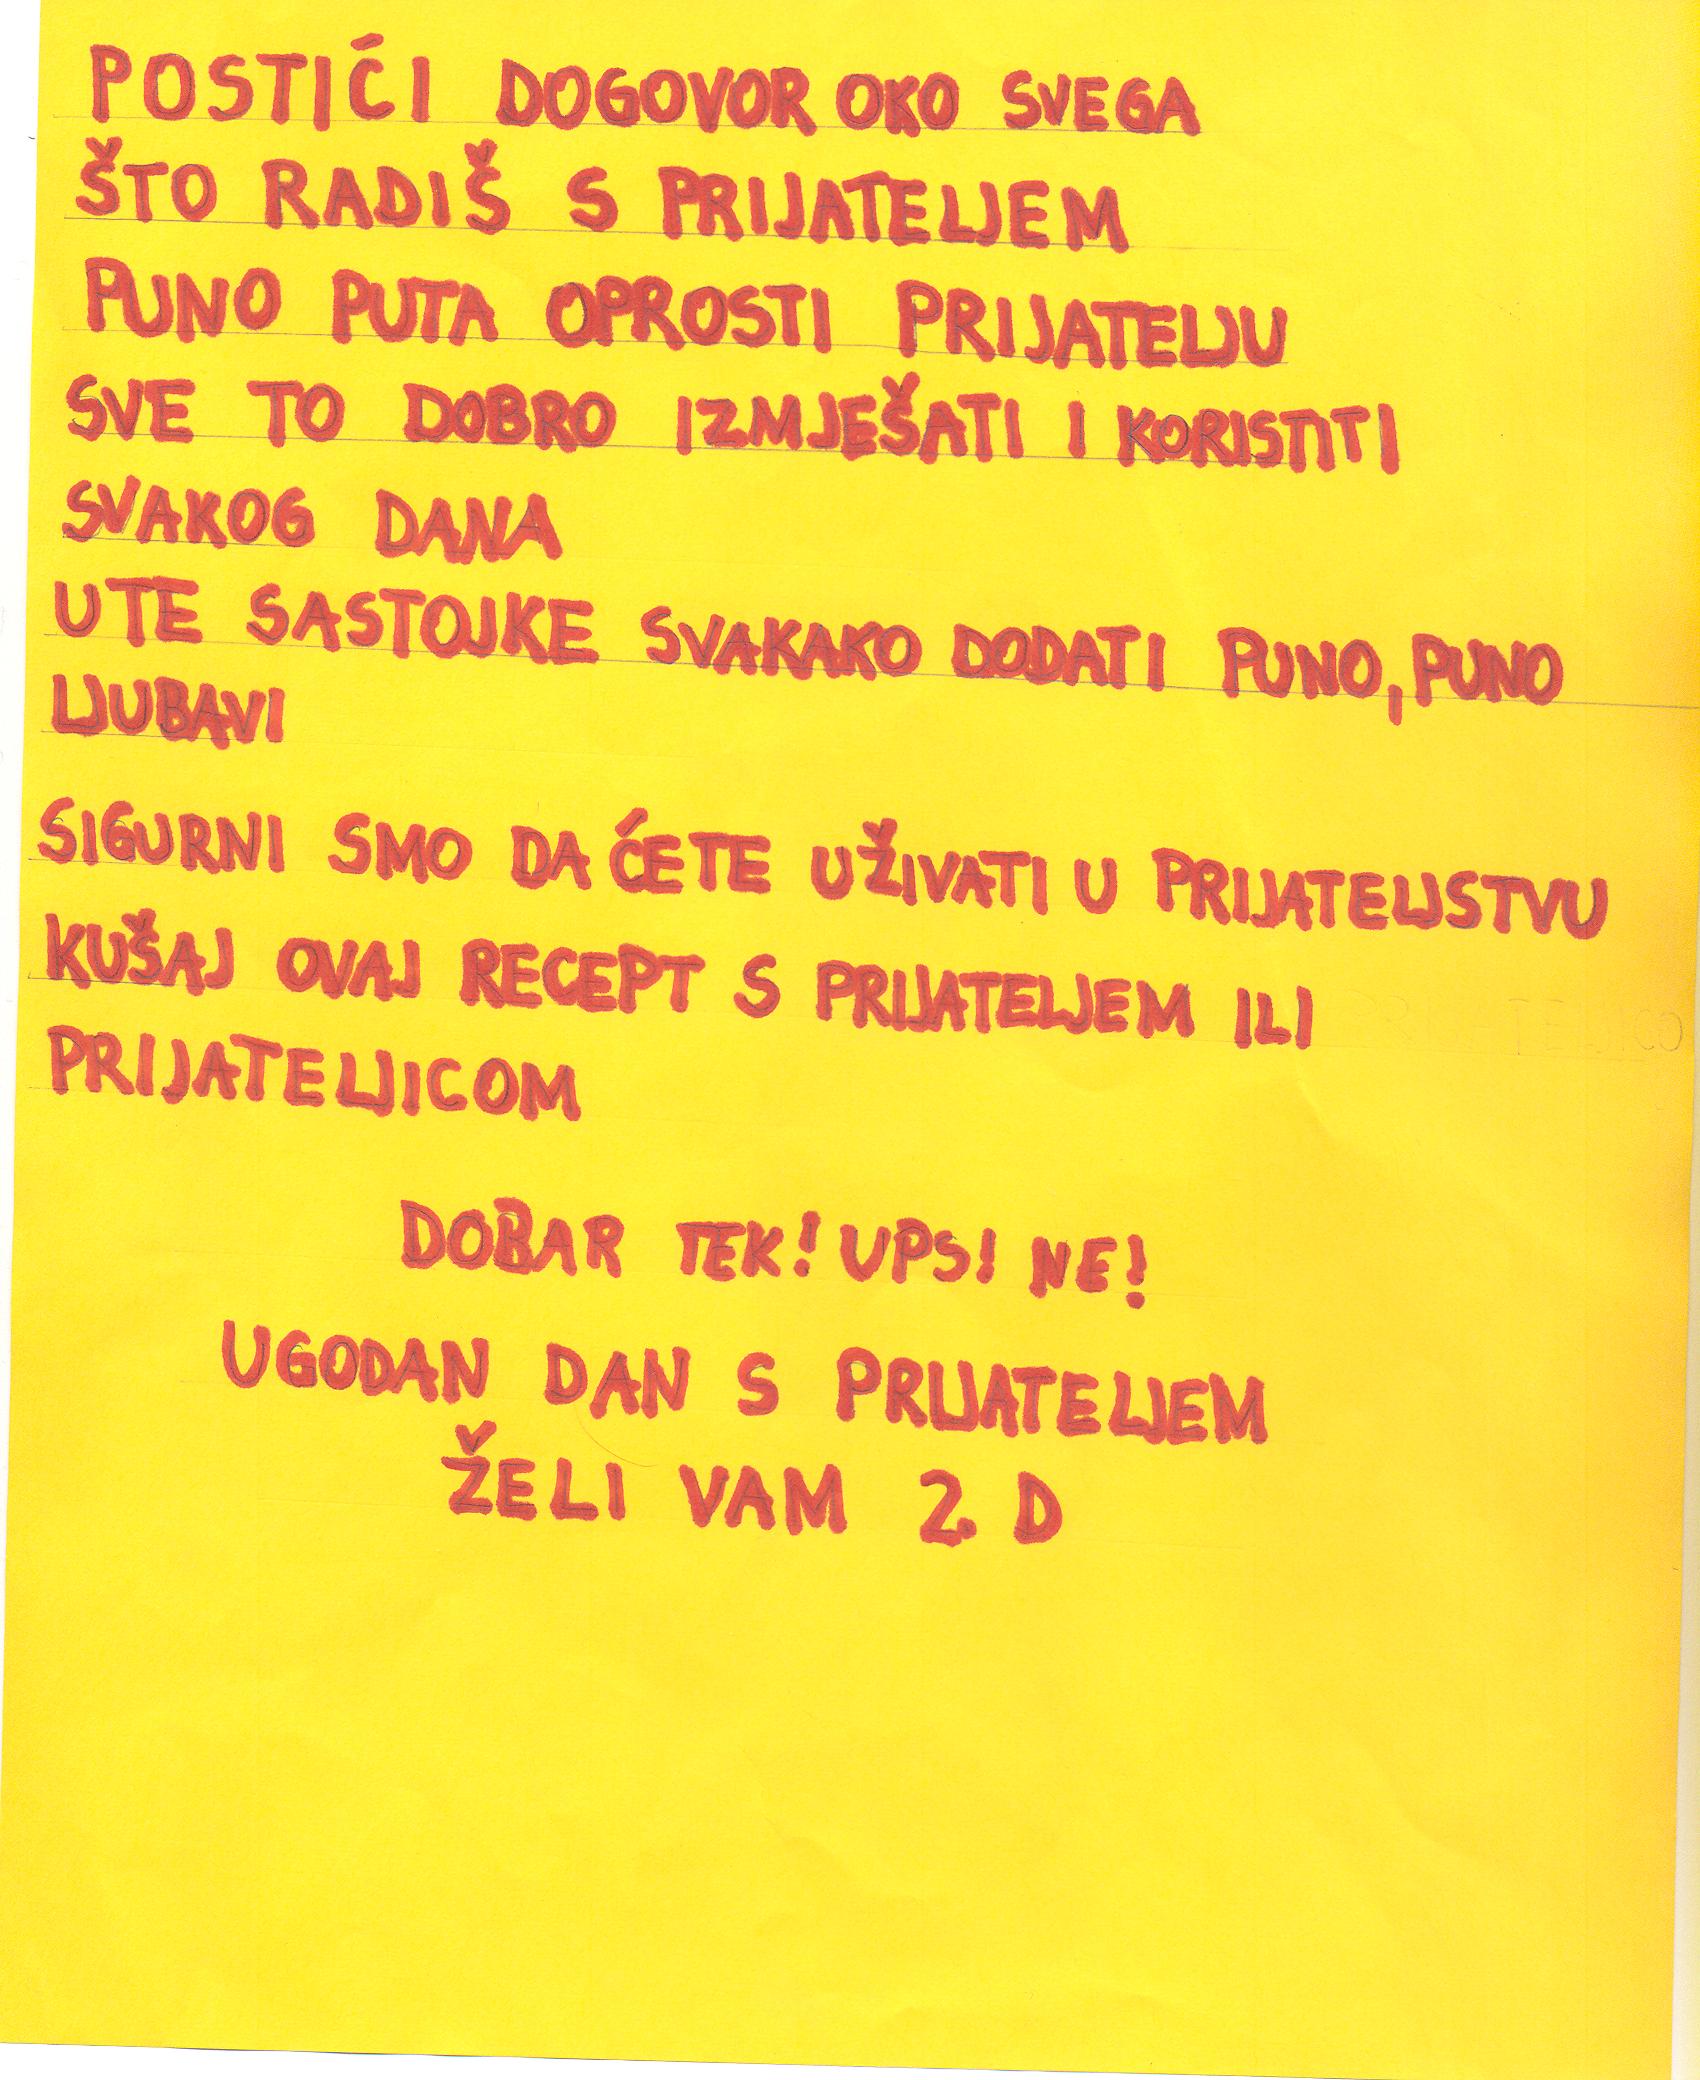 POSTIĆI DOGOVOR OKO SVEGA
ŠTO RADIŠ S PRIJATELJEM
PUNO PUTA OPROSTI PRIJATELJU
SVE TO DOBRO IZMJEŠATI I KORISTITI
SVAKOG DANA
U TE SASTOJKE SVAKAKO DODATI PUNO, PUNO
LJUBAVI
SIGURNI SMO DA ĆETE UŽIVATI U PRIJATELJSTVU
KUŠAJ OVAJ RECEPT S PRIJATELJEM ILI
PRIJATELJICOM
DOBAR TEK! UPS! NE!
UGODAN DAN S PRIJATELJEM
ŽELI VAM 2. D